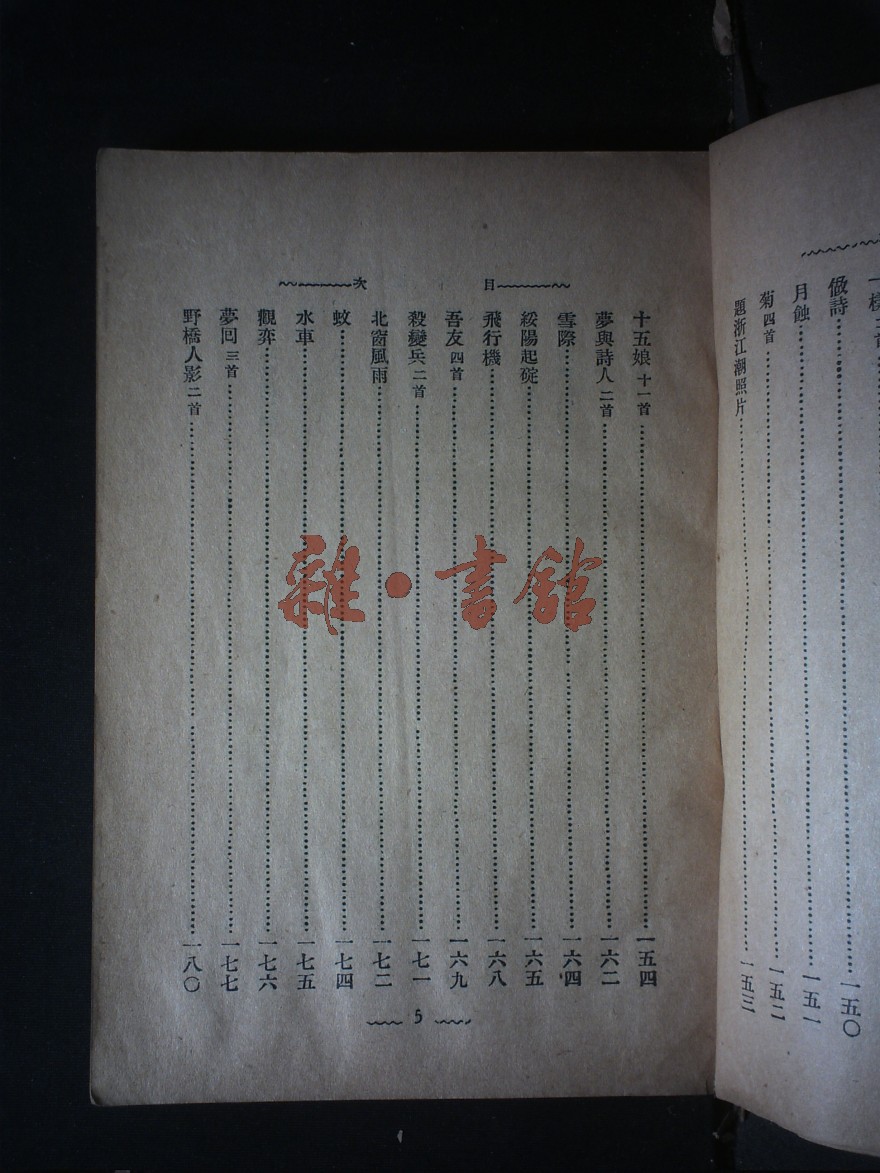 一樣 二首
做詩 一五〇
月蝕 一五一
菊 四首 一五二
題浙江潮照片 一五三
目次
十五娘 十一首 一五四
夢與詩人 二首 一六二
雪際 一六四
綏陽起碇 一六五
飛行機 一六八
吾友 四首 一六九
殺變兵 二首 一七一
北窗風雨 一七二
蚊 一七四
水車 一七五
觀弈 一七六
夢回 三首 一七七
野橋人影 二首 一八〇
5
雜·書館